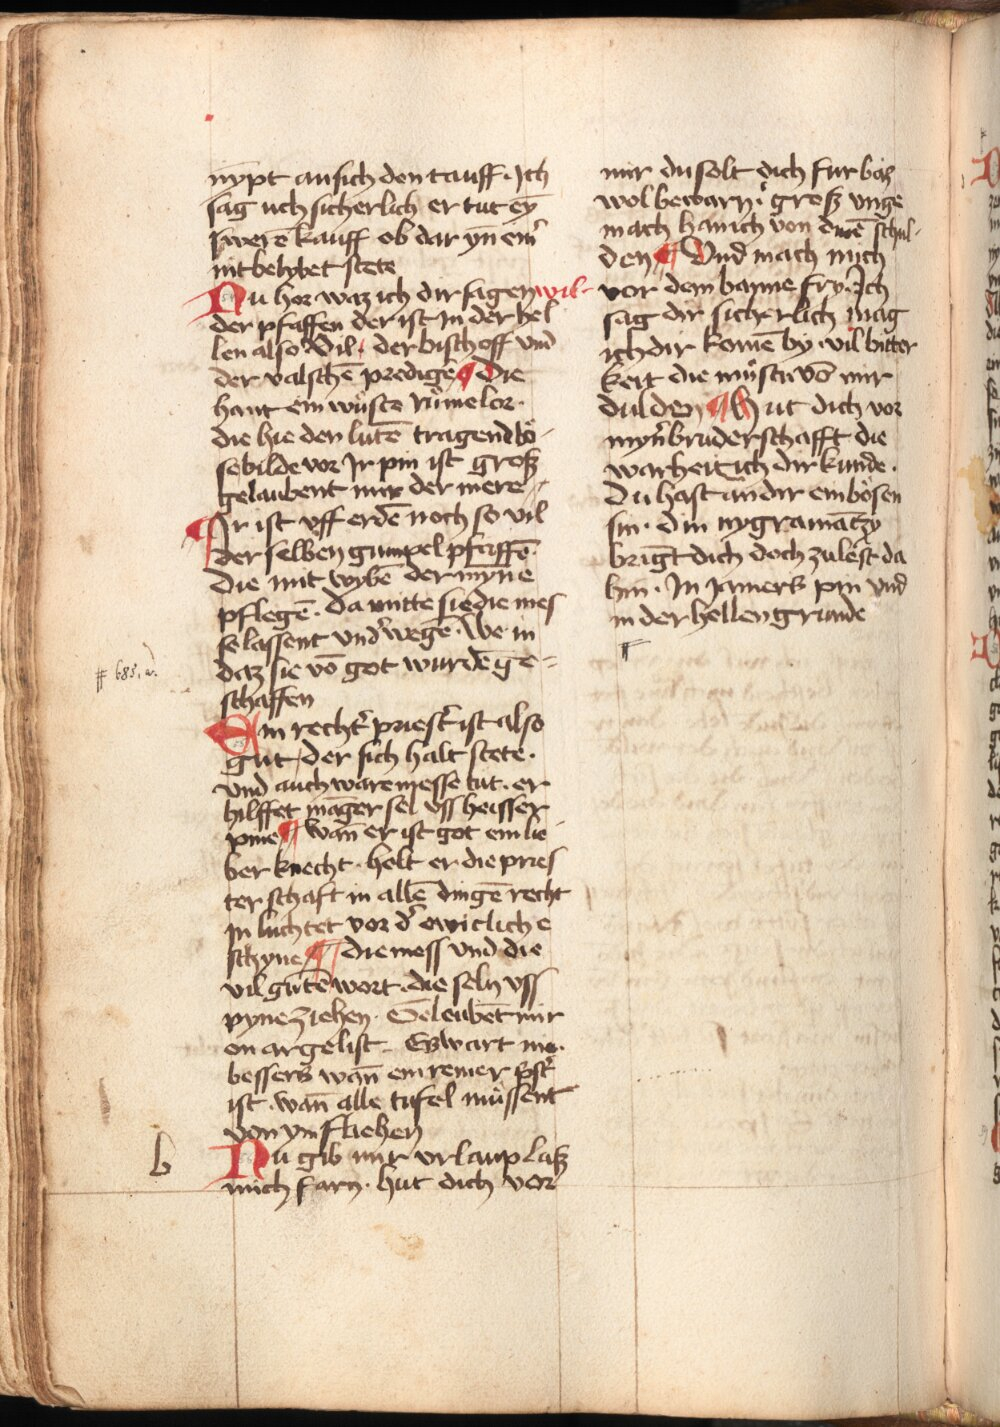 nypt an sich den tauff · Ich
sag uch sicherlich er tut eȳ
swerē kauff ob dar yn em̄
nit belybet stete
Nu hor waz ich dir sagen wil
der pfaffen der ist in der hel
len also vil · der bischoff vnd
der valschē predigē ¶ die
hant ein wüste rümelor ·
die hie den lutē tragend bö
se bilde vor Ir pin ist groß
gelaubent mir der mere
¶ Ir ist vff erdē noch so vil
der selben gumpelpfaffē
die mit wybē der myn̄e
pflegē · da mitte sie die mes
se lassent vnd̓wegē · We in
daz sie vō got wurdē ge=
schaffen
Ein recht̓ priest̓ ist also
gut der sich halt stete ·
vnd auch ware messe tut · er
hilffet māger sel vss heisser
pine ¶ wan̄ er ist got ein lie
ber knecht · helt er die pries
terschaft in allē dingē recht
in luchtet vor d̓ ewicliche
schyne ¶ die mess vnd die
vil gutē wort · die seln vss
pyne ziehen · Geleubēt mir
on argelist · Es wart nie
bessers wan̄ ein reiner p̄st̓
ist · wan̄ alle tufel müssent
von ym fliehen
Nu gib mir vrlaup laß
mich farn · hut dich vor
mir du solt dich fur baß
wol bewarn · groß vnge
mach han ich von dinē schul-
den ¶ Vnd mach mich
vor dem banne fry · Ich
sag dir sicherlich mag
ich dir komē by · vil bitter
keit die müstu vō mir
dulden ¶ Hut dich vor
myn̓ bruderschafft die
warheit ich dir kunde ·
du hast an dir ein bösen
sin · din nygramāczy
bringt dich doch zu lest da
hin · In jamers pin vnd
in der hellen grunde
# 685, a.
b